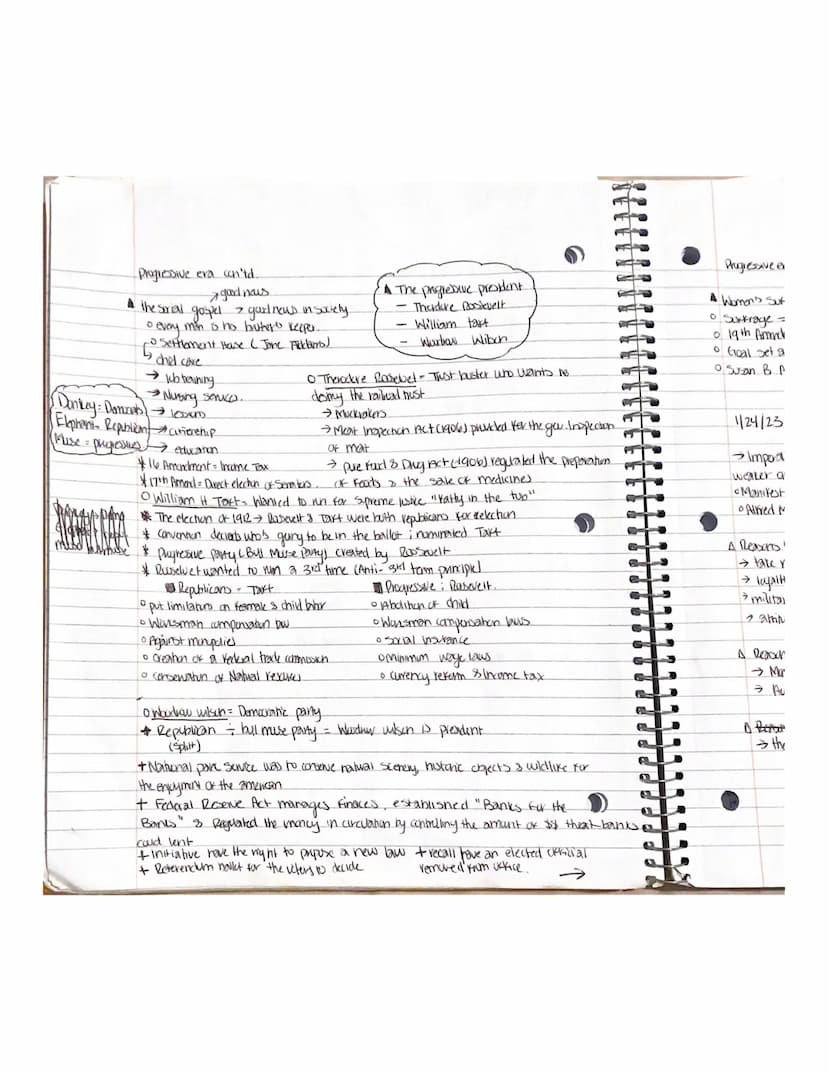 Progressive era con'td.
→ good news
▲ the social gospel → good news in society
○ every man is his brother's keeper.
○ Settlement House (Jane Addams)
↳ child care
→ Job training
→ Nursing services.
→ lessons
→ citizenship
→ education
▲ The progressive president
– Theodore Roosevelt
– William taft
– Woodrow Wilson
Donkey = Democrats
Elephant = Republican
Muse = progressives
○ Theodore Roosevel = Trust buster who wants to
destroy the railroad trust
→ Muckrakers
→ Meat Inspection Act (1906) provided for the gov. Inspection
of meat
→ pure Food & Drug Act (1906) regulated the preparation
of Foods & the sale of medicines
* 16 Amendment = Income Tax
* 17th Amend = Direct election of Senators.
○ William H Taft = Wanted to run for supreme justice "Fatty in the tub"
* The election of 1912 → Roosevelt & Taft were both republicans for election
* Convention decides who's going to be in the ballot; nominated Taft
* Progressive Party (Bull Muse Party) created by Roosevelt
* Roosevelt wanted to run a 3rd time (Anti-3rd term principle)
■ Republicans = Taft
○ put limitations on female & child labor
○ Workman compensation law
○ Against monopolies
○ creation of a federal trade commission
○ conservation of Natural resources
■ Progressive: Roosevelt.
○ Abolition of child
○ Workman compensation laws
○ social insurance
○ minimum wage laws
○ currency reform & income tax
○ Woodrow wilson = Democratic party
+ Republican ÷ bull muse party = Woodrow wilson is president
(split)
+ National park service was to conserve natural scenery, historic objects & wildlife for
the enjoyment of the american
+ Federal Reserve Act manages finances, established "Banks for the
Banks" & Regulated the money in circulation by controlling the amount of $$ that banks
could lent
+ Initiative have the right to propose a new law + recall have an elected official
removed from office.
+ Referendum ballot for the voters to decide
→
Progressive e
▲ Women's Suf
○ Suffrage =
○ 19th Amend
○ Goal set a
○ Susan B A
1/24/23
→ Impe
weaker a
○ Manifest
○ Alfred M
△ Reasons
→ take r
→ loyalt
→ milita
△ Reason
→ the